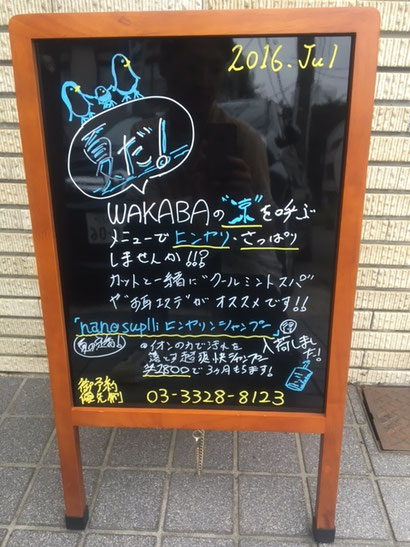 2016.Jul
夏だ!
WAKABAの"涼"を呼ぶ
メニューでヒンヤリ・さっぱり
しませんか!!?
カットと一緒に"クールミントスパ"
や"お耳エステ"がオススメです!!
「nano suplliヒンヤリンシャンプー」
入荷しました!
夏の味方!
イオンの力で汚れを
落とす超爽快シャンプー
¥2800で3ヶ月もちます!
御予約
優先制
03-3328-8123